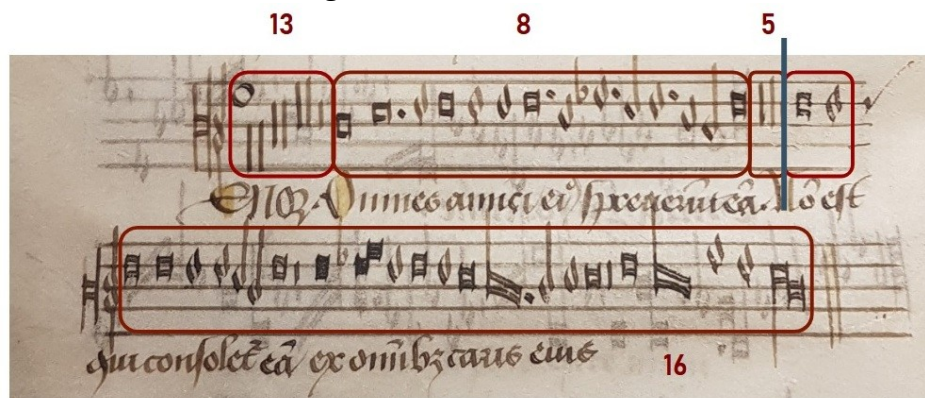 13 8 5
Omnes amici ei⁹ spreverūt eā. Nō est
qui consolet̄ eā ex omĩbꝫ caris eius
16